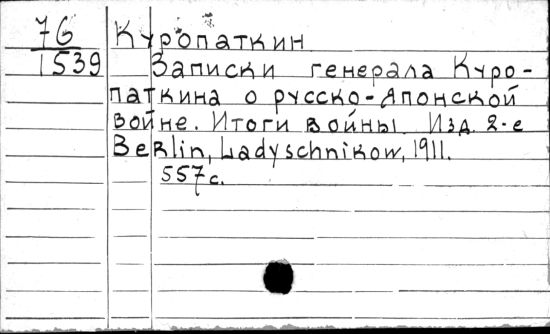 76
1539
Куропаткин
Записки генерала Куро-
паткина о русско-японской
войне. Итоги войны. Изд. 2-е
Berlin, Ladyschnikow, 1911.
557 с.